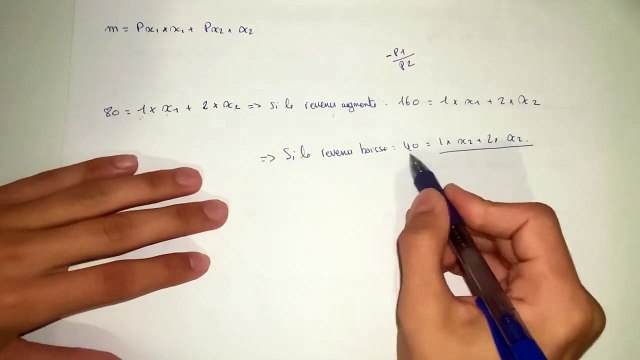 m = Px1 × x1 + Px2 + x2
-P1
P2
80 = 1 × x1 + 2 × x2 => si le revenu augmente : 160 = 1 × x1 + 2 × x2
=> Si le revenu baisse : 40 = 1 × x2 + 2 × x2.